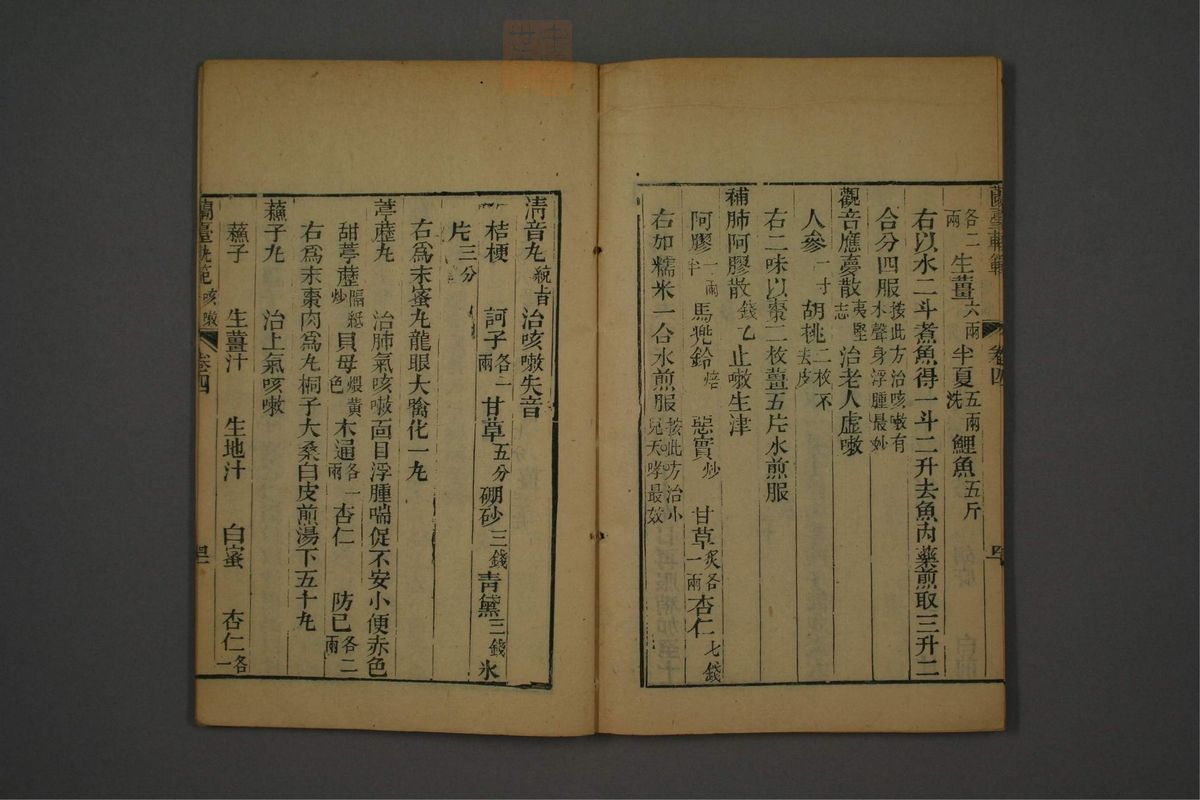 蘭臺軌範 卷四
各二兩 生薑六兩 半夏五兩洗 鯉魚五斤
右以水二斗煮魚得一斗二升去魚內藥煎取三升二
合分四服按此方治咳嗽有水聲身浮腫最妙
觀音應夢散夷堅志 治老人虛嗽
人參一寸 胡桃二枚不去皮
右二味以棗二枚薑五片水煎服
補肺阿膠散錢乙 止嗽生津
阿膠一兩半 馬兜鈴焙 惡實炒 甘草炙各一兩 杏仁七錢
右如糯米一合水煎服按此方治小兒天哮最效
清音丸 治咳嗽失音
桔梗 訶子各一兩 甘草五分 硼砂三錢 青黛三錢 氷
片三分
右爲末蜜丸龍眼大噙化一丸
葶藶丸 治肺氣咳嗽面目浮腫喘促不安小便赤色
甜葶藶隔紙炒 貝母煨黃色 木通各一兩 杏仁 防已各二兩
右爲末棗肉爲丸桐子大桑白皮煎湯下五十丸
蘇子丸 治上氣咳嗽
蘇子 生薑汁 生地汁 白蜜 杏仁各一
蘭臺軌範 咳嗽 卷四